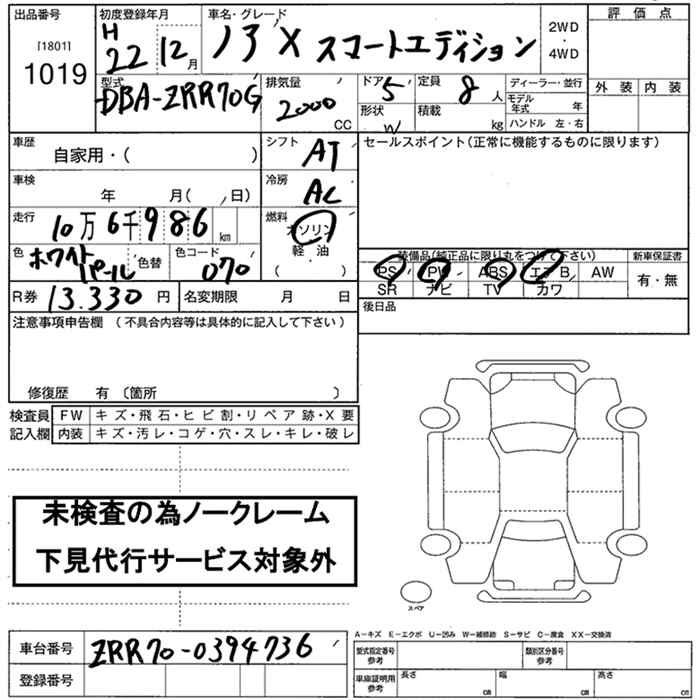 出品番号
[1801]
1019
初度登録年月
H 22 12 月
車名・グレード
ノア X スマートエディション
2WD
・
4WD
評価点
外装 内装
型式
DBA-ZRR70G
排気量
2000
CC
ドア 5
形状 W
定員 8 人
積載 kg
ディーラー・並行
モデル年式 年
ハンドル 左・右
車歴
自家用・( )
シフト
AT
セールスポイント(正常に機能するものに限ります)
車検
年 月( , 日)
冷房
AC
走行
10万 6千 9 8 6 km
燃料
ガソリン
軽・油
( )
色
ホワイトパール
色替
色コード
070
装備品(純正品に限り丸をつけて下さい)
PS PW ABS エアB AW
SR ナビ TV カワ
新車保証書
有・無
R券 13.330 円
名変期限 月 日
後日品
注意事項申告欄 (不具合内容等は具体的に記入して下さい)
修復歴 有 〔箇所 〕
検査員記入欄
FW キズ・飛石・ヒビ割・リペア跡・X要
内装 キズ・汚レ・コゲ・穴・スレ・キレ・破レ
未検査の為ノークレーム
下見代行サービス対象外
スペア
A-キズ E-エクボ U-凹み W-補修跡 S-サビ C-腐食 XX-交換済
車台番号 ZRR70-0394736
登録番号
型式指定番号
参考
類別区分番号
参考
車庫証明用
参考
長さ cm
幅 cm
高さ cm